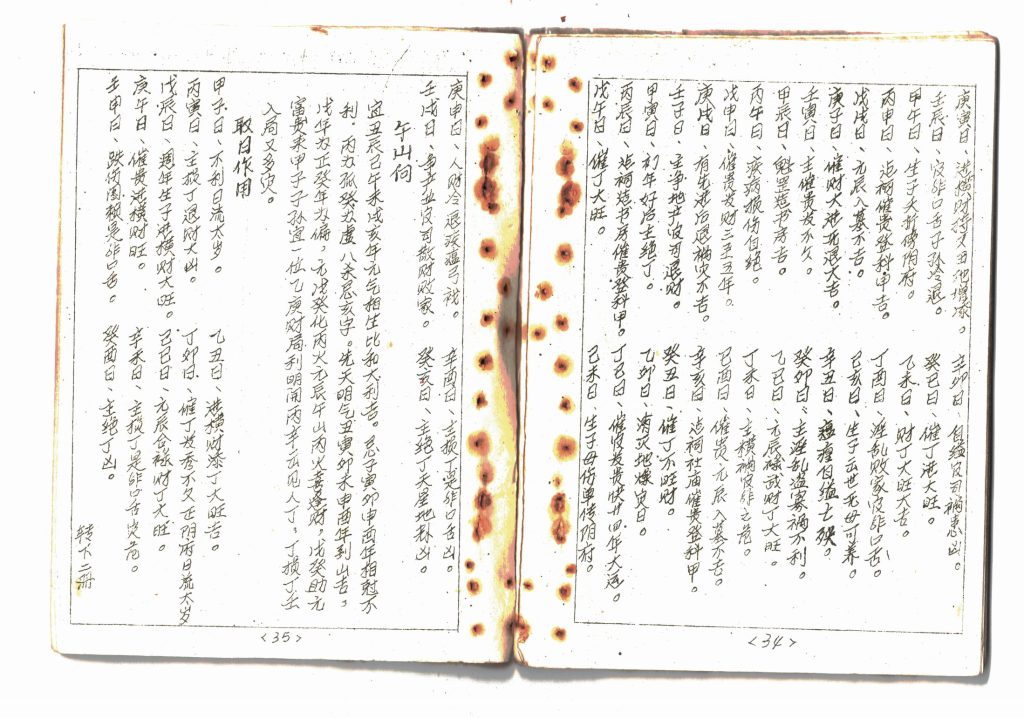 庚寅日、进横财
壬辰日、官非口舌子孙冷退。
甲午日、生子大折传阴府。
丙申日、占祠催贵登科甲吉。
戊戌日、元辰入墓不吉。
庚子日、催财大进
壬寅日、主催贵发不久。
甲辰日、魁罡
丙午日、疾病损伤自绝。
戊申日、催贵发财三至五年。
庚戌日、有先进后退祸灾不吉。
壬子日、主争地产官司退财。
甲寅日、初年好后主绝丁。
丙辰日、占祠
戊午日、催丁大旺。
辛卯日、自缢官司祸患凶。
癸巳日、催丁进大旺。
乙未日、财丁大旺大吉。
丁酉日、淫乱败家官非口舌。
己亥日、生子云世无母可养。
辛丑日、
癸卯日、主淫乱盗寡祸不利。
乙巳日、元辰禄武财丁大旺。
丁未日、主横祸官非之危。
己酉日、催贵元辰入墓不吉。
辛亥日、占祠社庙催贵登科甲。
癸丑日、催丁不旺财。
乙卯日、消灭地煤灾日。
丁巳日、催官发贵快廿四年大运。
己未日、生子母伤单传阴府。
<34>
庚申日、人财冷退
壬戌日、争产业官司散财败家。
辛酉日、主损丁是非口舌凶。
癸亥日、主绝丁天星地卦凶。
午山向
宜丑辰巳午未戌亥年元气相生比和大利吉。忌子寅卯申酉年相克不
利。丙为孤癸为虚八杀忌亥字。先天明气丑寅卯未申酉年到山吉，
戊午为正癸年为偏。元戊癸化丙火元辰午山丙火
富贵来甲子子孙宜一位乙庚财局利明用丙辛云见人丁，丁损丁壬
入局又多灾。
取日作用
甲子日、不利日流太岁。
丙寅日、主损丁退财大凶。
戊辰日、周年生子进横财大旺。
庚午日、催贵进横财旺。
壬申日、跌伤
乙丑日、进横财添丁大旺吉。
丁卯日、催丁发秀不久正阴府日流太岁
己巳日、元辰合禄财丁大旺。
辛未日、主损丁是非口舌灾危。
癸酉日、主绝丁凶。
转下二册
<35>